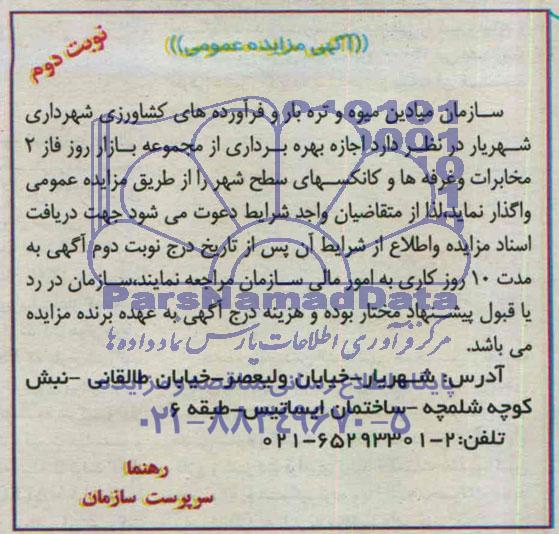 ((آگهی مزایده عمومی))
نوبت دوم
سازمان میادین میوه و تره بار و فرآورده های کشاورزی شهرداری
شهریار در نظر دارد اجازه بهره برداری از مجموعه بازار روز فاز ۲
مخابرات وغرفه ها و کانکسهای سطح شهر را از طریق مزایده عمومی
واگذار نماید،لذا از متقاضیان واجد شرایط دعوت می شود جهت دریافت
اسناد مزایده واطلاع از شرایط آن پس از تاریخ درج نوبت دوم آگهی به
مدت ۱۰ روز کاری به امور مالی سازمان مراجعه نمایند،سازمان در رد
یا قبول پیشنهاد مختار بوده و هزینه درج آگهی به عهده برنده مزایده
می باشد.
آدرس: شهریار-خیابان ولیعصر-خیابان طالقانی -نبش
کوچه شلمچه -ساختمان ایساتیس-طبقه ۶
تلفن:۲-۶۵۲۹۳۳۰۱-۰۲۱
رهنما
سرپرست سازمان
ParsNamadData
مرکز فرآوری اطلاعات پارس نماد داده ها
۰۲۱-۸۸۳۴۹۶۷۰-۵